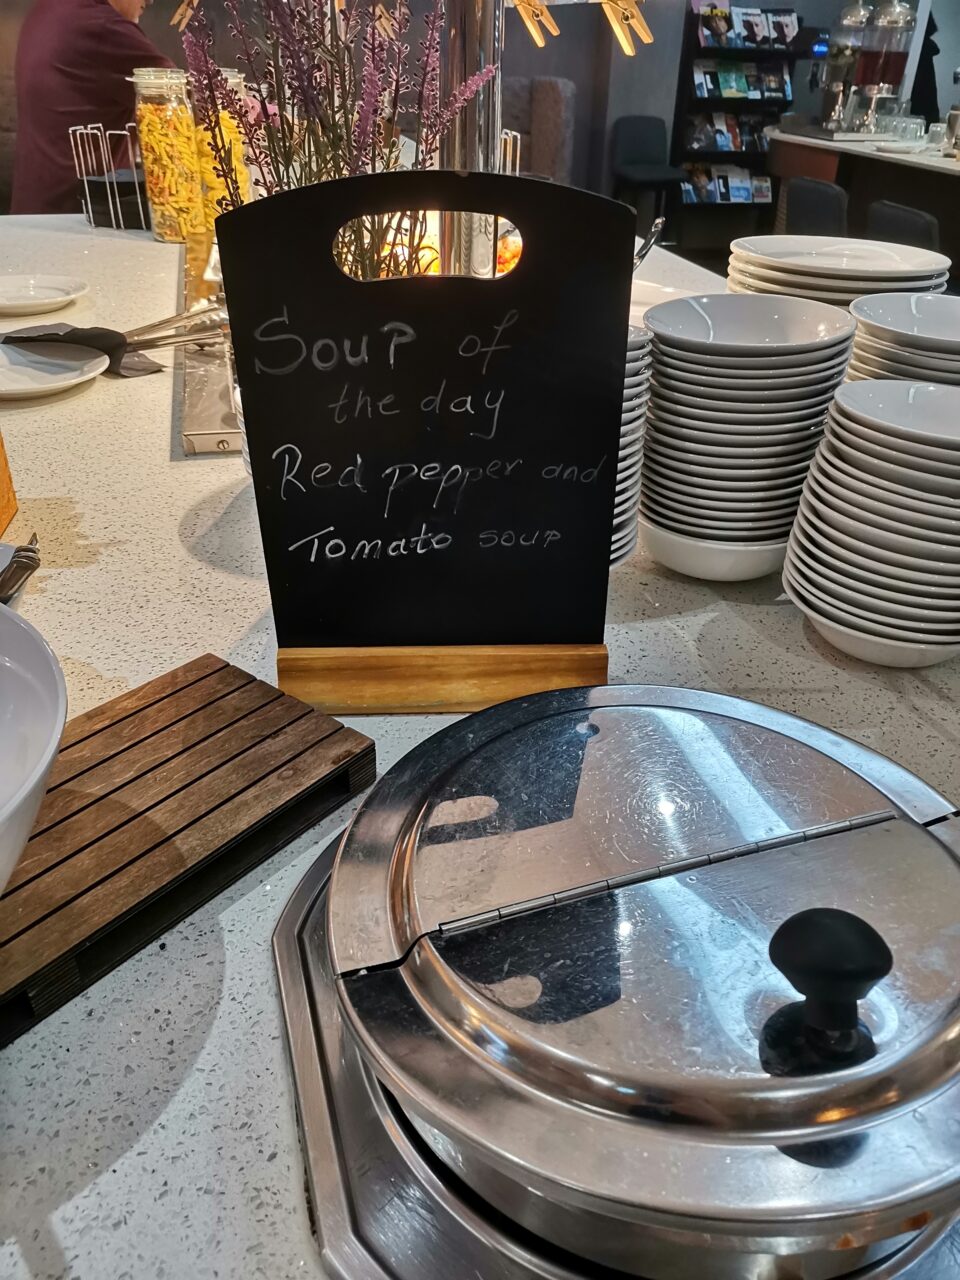 Soup of
the day
Red pepper and
Tomato soup